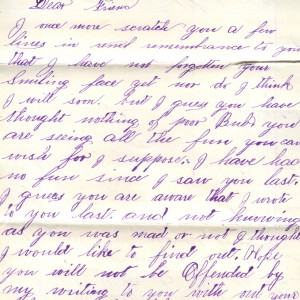 Dear Friend
I once more scratch you a few
lines in remembrance to you
that I have not forgotten your
Smiling face yet nor do I think
I will soon. but I guess you have
thought nothing of poor Bud. you
are seeing all the fun you can
wish for I suppose. I have had
no fun since I saw you last.
I guess you are aware that I wrote
to you last and not knowing
as you was mad or not I thought
I would like to find out. Hope
you will not be Offended by
my writing to you with out your